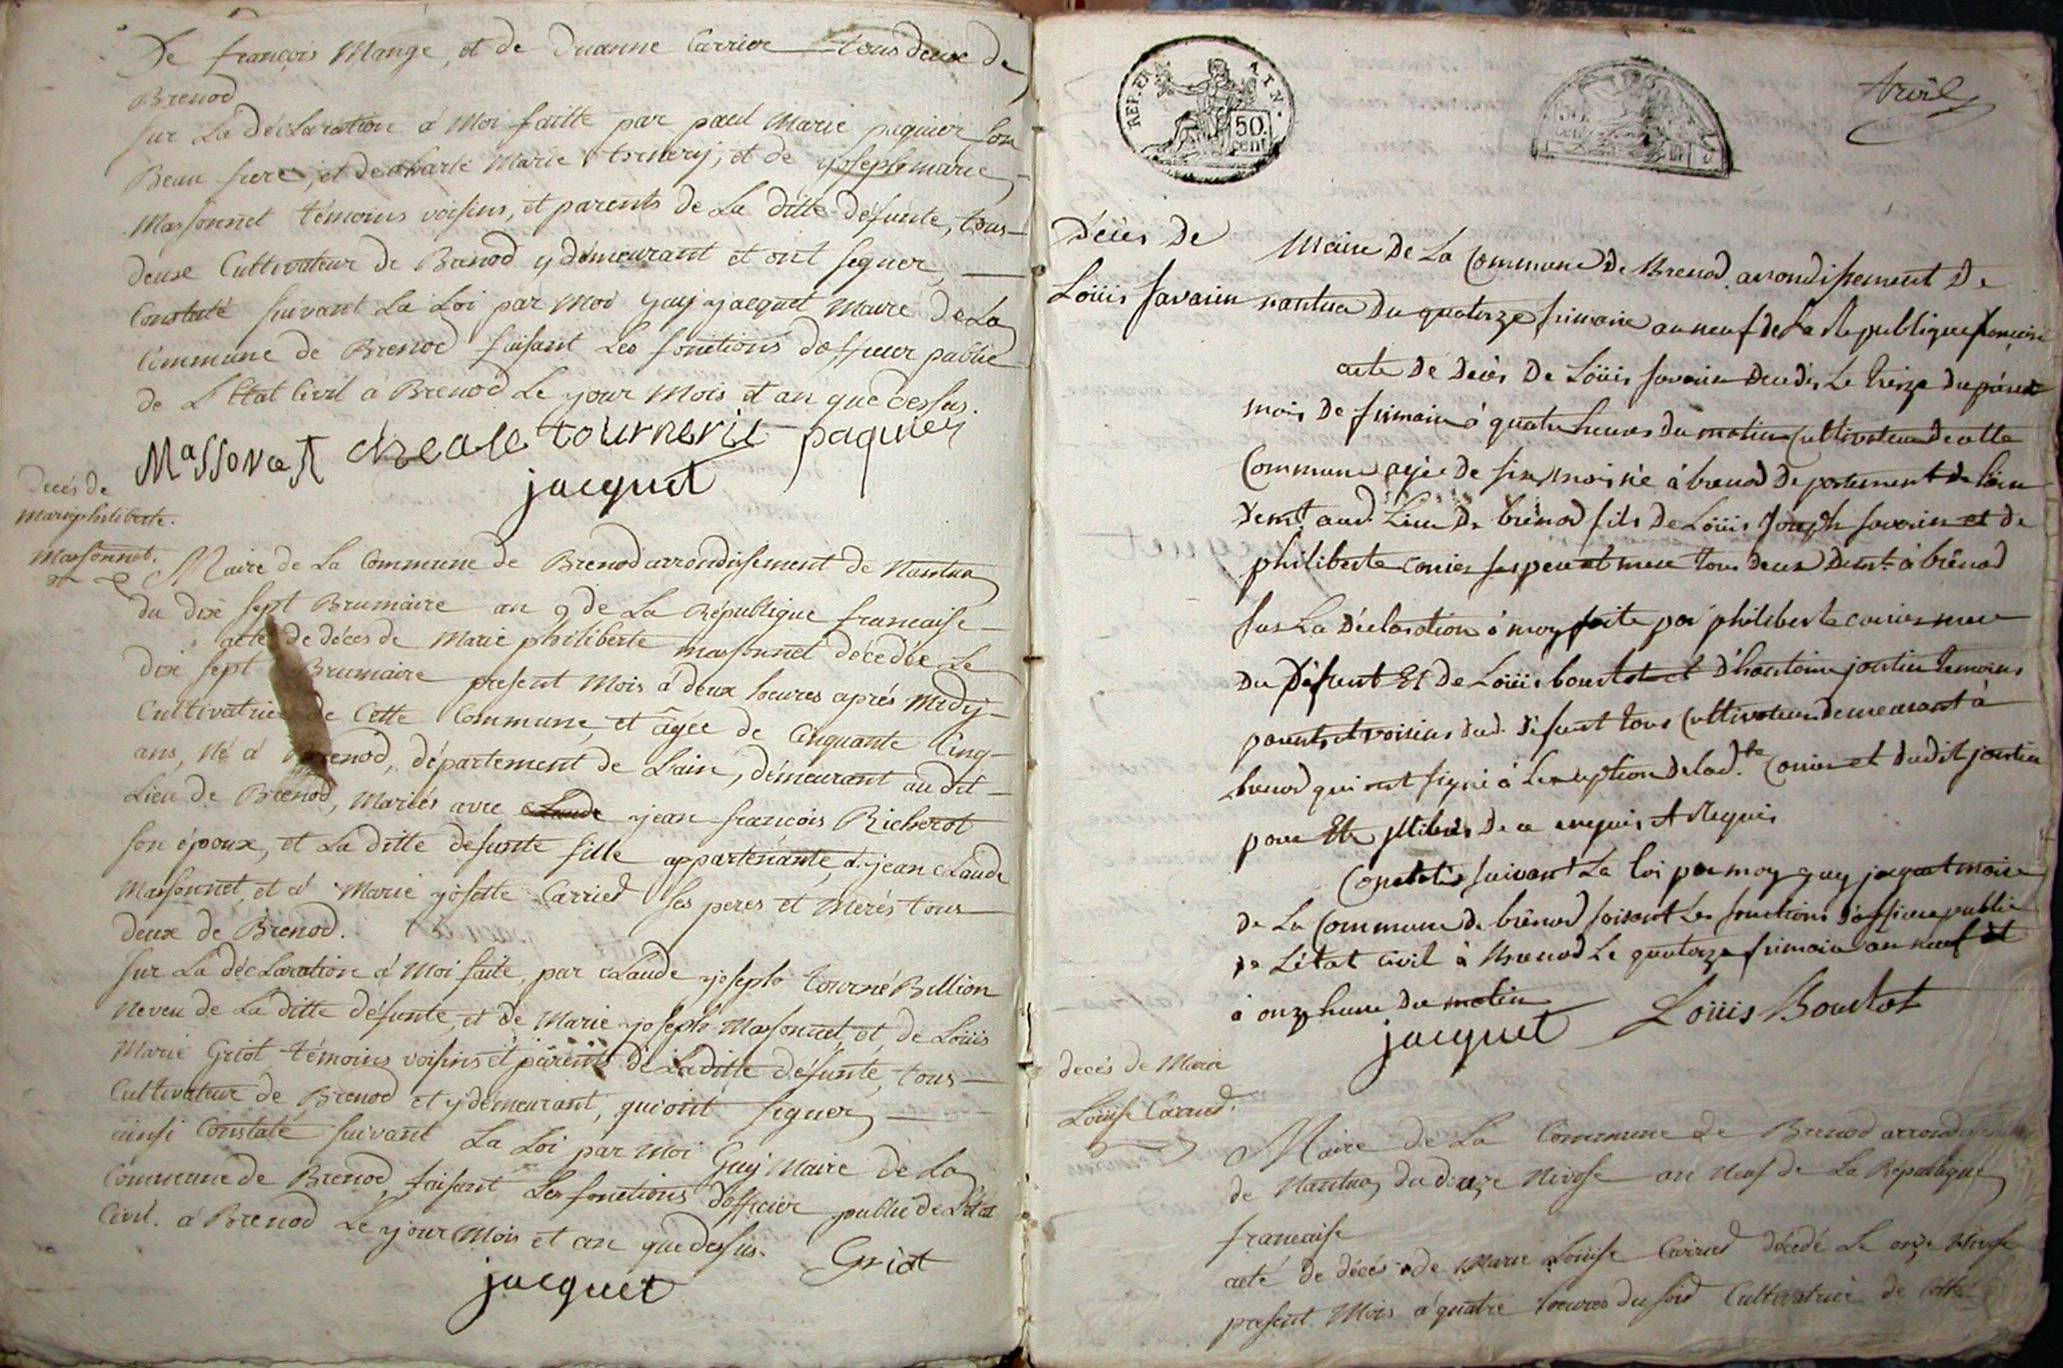 De françois Mange, et de Duanne Carrier tous deux de
Brenod
Sur La déclaration à Moi faitte par paul Marie paquier son
Beau frere, et de Marie et de yoseph marie
Massonnet témoins voisins, et parents de La ditte défunte, tous
deuse Cultivateur de Brenod y démeurant et ont signer,
Constaté suivant La Loi par Moi Guy Jacquet Maire de La
Commune de Brenod faisant Les fonctions d'officier public
de L'Etat Civil à Brenod Le your Mois et an que dessus.
Massonet tournerie paquier
jacquet
Decés de
Marie philiberte
Massonnet.
Maire de La Commune de Brenod arrondissement de Nantua
du dixe sept Brumaire an 9 de La République francaise
acte de décés de Marie philiberte massonnet décédée Le
dix sept Brumaire present Mois à deux heures aprés Midy
Cultivatrice de Cette Commune, et âgée de Cinquante Cinq
ans, né à Brenod, département de Lain, démeurant au dit
Lieu de Brenod, Mariés avec Claude yean francois Richerot
son époux, et La ditte defunte fille appartenante, à yean Claude
Massonnet, et à Marie yosette Carrier ses peres et Merés tous
deux de Brenod.
Sur La déclaration à Moi faite, par Claude yoseph tourné Billion
Neveu de La ditte défunte, et de Marie yoseph Massonnet, et, de Loüis
Marie Griot témoins voisins et parents de Laditte défunte, tous
Cultivateur de Brenod et y démeurant, qui ont signer,
ainsi Constaté suivant La Loi par Moi Guy Maire de La
Commune de Brenod, faisant Les fonctions d'officier public de L'Etat
Civil. à Brenod Le your Mois et an que dessus.
Griot
jacquet
REP. FRA
50.
cent.
Avril
Décès De
Loüis Savarin
Maire De La Commune De Brenod arrondissement De
nantua Du quatorze frimaire an neuf de La Republique francaise
acte De Décès De Loüis Savarin Décédé Le treize du présent
mois De frimaire à quatre heures du matin Cultivateur De cette
Commune agée de six mois né à brenod Departement de lain
Demt. aud. Lieu De brenod fils De Loüis Joseph Savarin et de
philiberte carrier ses pere et mere tous deux Demt. à brénod
sur La Déclaration à moy faite par philiberte carrier mere
Du Défunt Et De Loüis bourtot et D'hantoine joutin temoins
parents et voisins dud. Défunt tous Cultivateurs demeurant à
brenod qui ont signé à L'exception De lad.te Carrier et dudit joutin
pour Etre De ce enquis Et Requis
Constaté suivant La loi par moy guy jacquet maire
de La Commune de brénod faisant Les fonctions d'officier public
De L'état civil à Brenod Le quatorze frimaire an neuf et
à onze heure du matin
jacquet Loüis Bourtot
decés de Marie
Loüise Carried.
Maire de La Commune de Brenod arrondissement
de Nantua du douze Nivose an Neuf de La République
francaise
acté de décés de Marie Loüise Carried décédé Le onze Nivose
present Mois à quatre heures du soir Cultivatrice de Cette